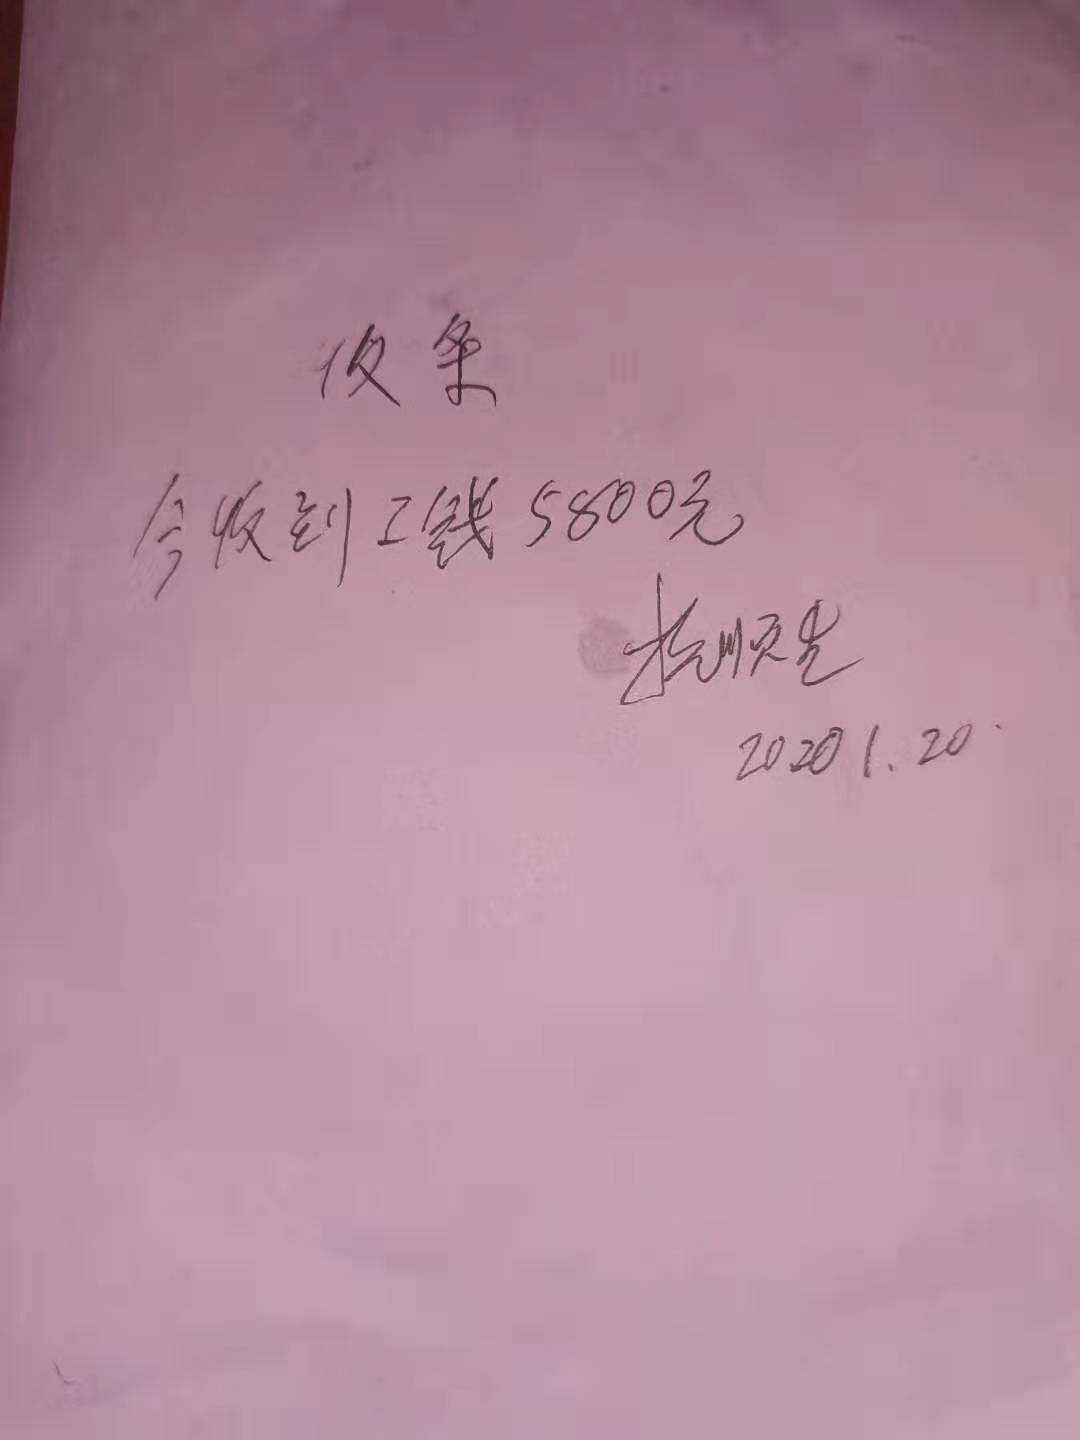 收条
今收到工钱5800元
顺生
2020 1.20.